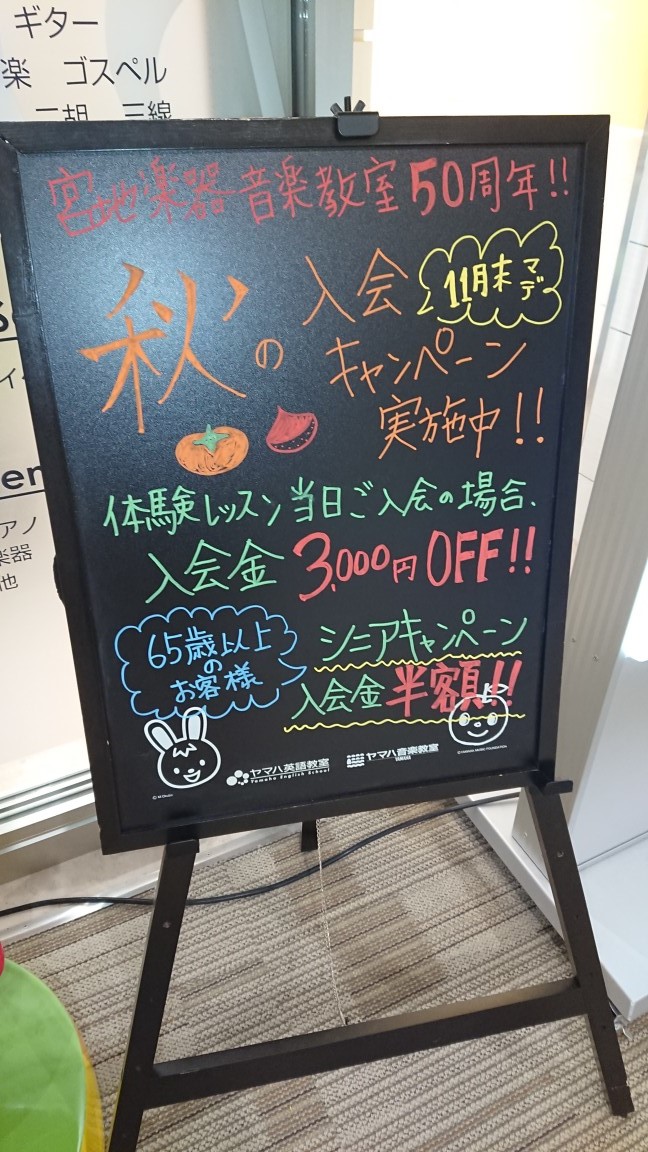 ギター
楽 ゴスペル
二胡 三線
宮地楽器音楽教室50周年!!
秋の入会
11月末マデ
キャンペーン
実施中!!
体験レッスン当日ご入会の場合、
入会金 3,000円OFF!!
65歳以上
の
お客様
シニアキャンペーン
入会金半額!!
ヤマハ英語教室
Yamaha English School
ヤマハ音楽教室
YAMAHA
© YAMAHA MUSIC FOUNDATION
アノ
楽器
他